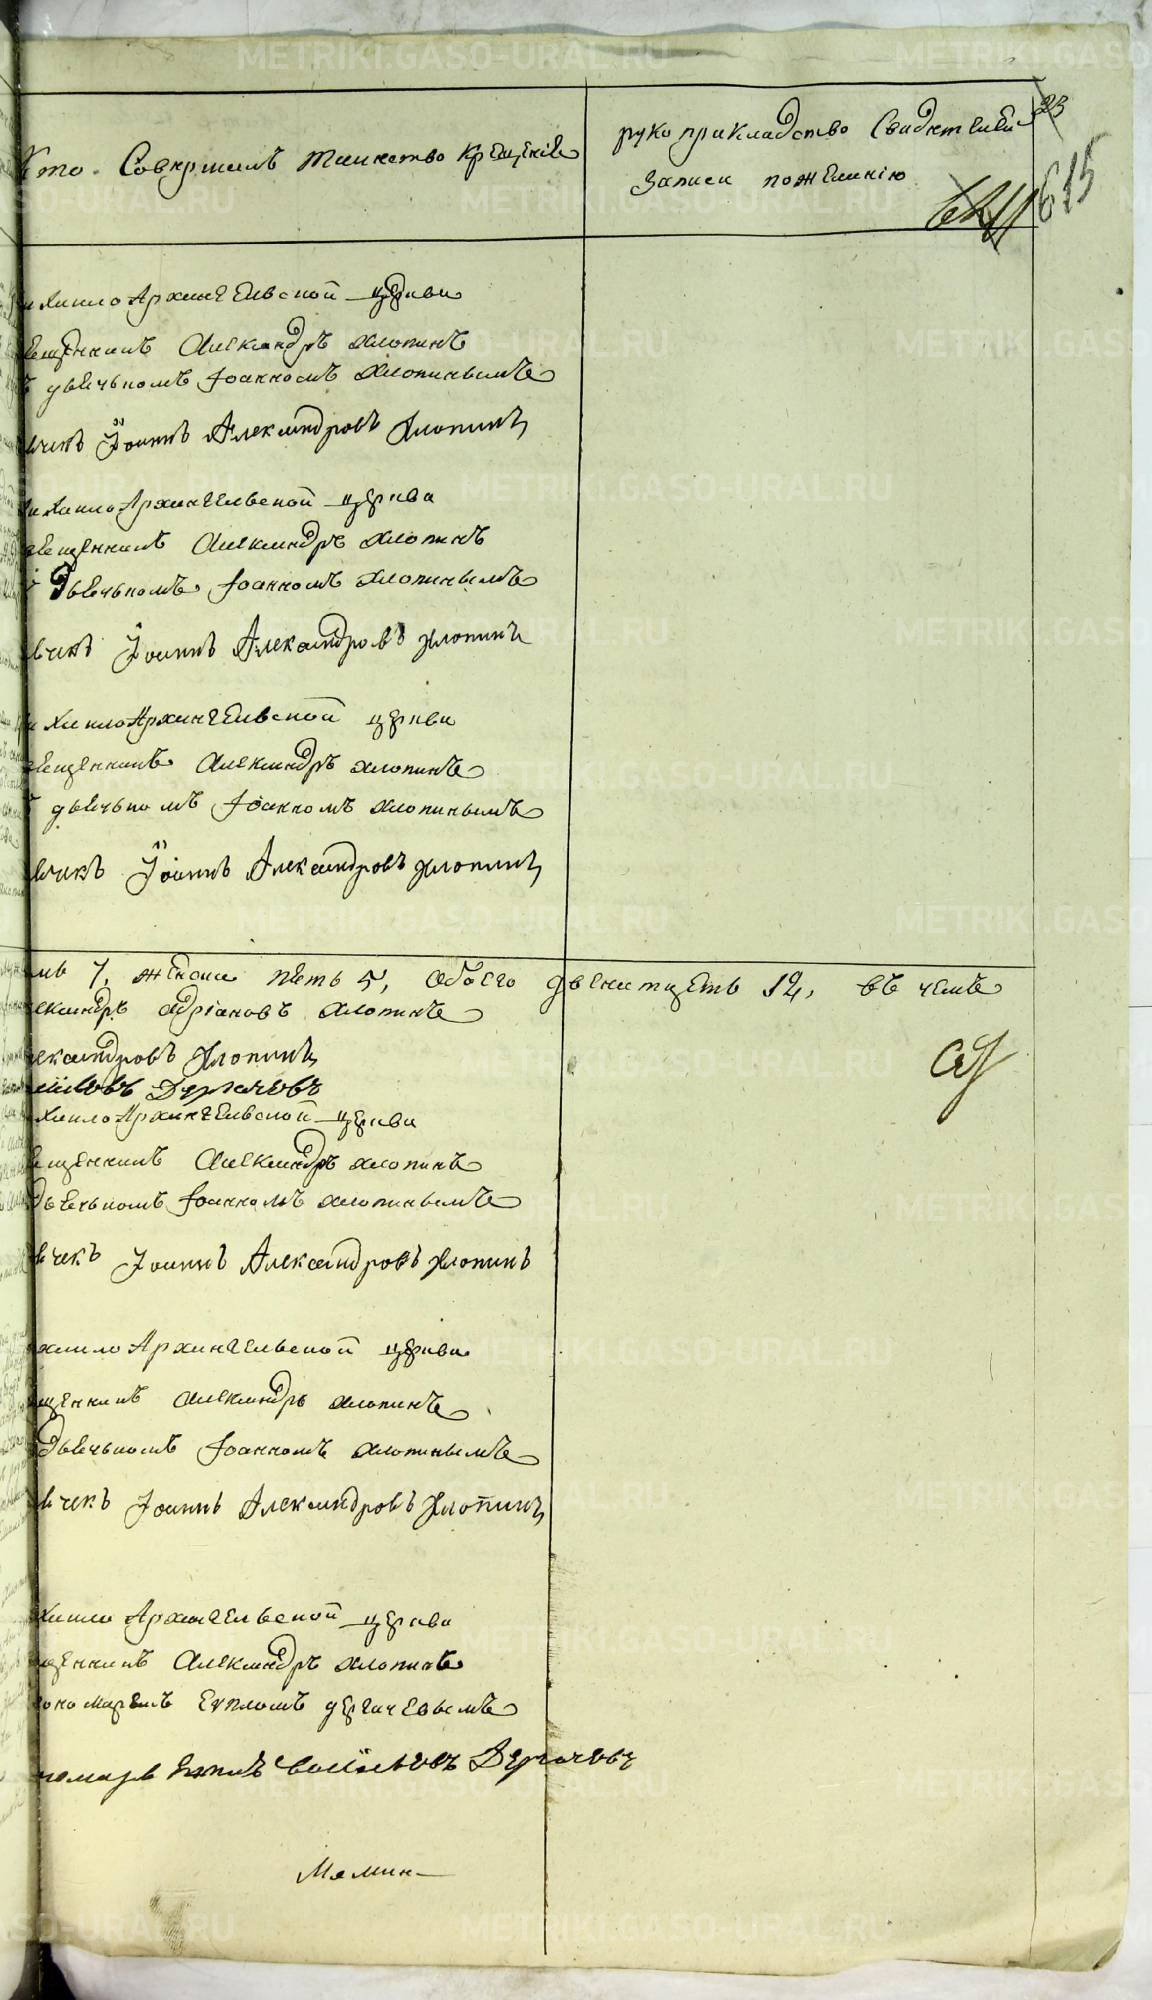 Кто Совершилъ таинство крещенiе
рукоприкладство Свидѣтелей
записи по желанiю
23
615
Михаило Архангельской церкви
священникъ Александръ Хлопинъ
съ дьячькомъ Iоанномъ Хлопинымъ
дьячекъ Iоаннъ Александровъ Хлопинъ
Михаило Архангельской церкви
священникъ Александръ Хлопинъ
съ дьячькомъ Iоанномъ Хлопинымъ
дьячекъ Iоаннъ Александровъ Хлопинъ
Михаило Архангельской церкви
священникъ Александръ Хлопинъ
съ дьячькомъ Iоанномъ Хлопинымъ
дьячекъ Iоаннъ Александровъ Хлопинъ
7, женска пять 5, обоего двенатцеть 12, въ чемъ
Александръ Адрiановъ Хлопинъ
Александровъ Хлопинъ
Дергачовъ
Михаило Архангельской церкви
священникъ Александръ Хлопинъ
дьячькомъ Iоанномъ Хлопинымъ
дьячекъ Iоаннъ Александровъ Хлопинъ
Михаило Архангельской церкви
священникъ Александръ Хлопинъ
дьячькомъ Iоанномъ Хлопинымъ
дьячекъ Iоаннъ Александровъ Хлопинъ
Михаило Архангельской церкви
священникъ Александръ Хлопинъ
пономаремъ Евпломъ Дергачевымъ
пономарь Дергачовъ
Мамин
METRIKI.GASO-URAL.RU